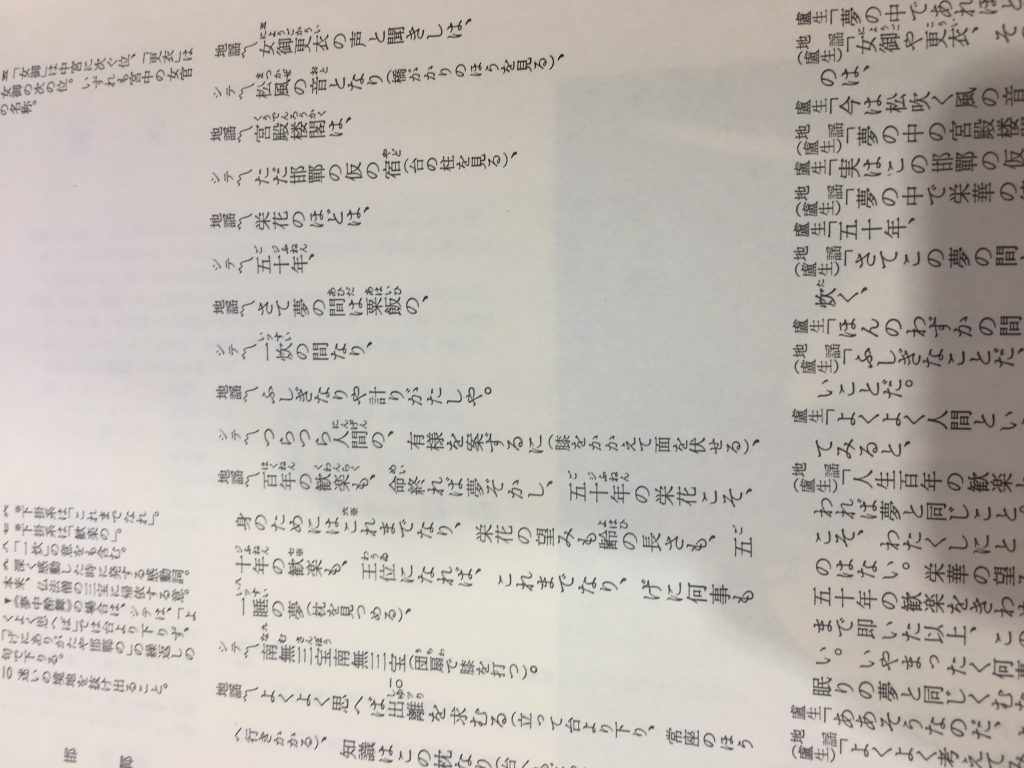 五「女御」は中宮に次ぐ位、「更衣」は
女御の次の位。いずれも宮中の女官
の名称。
六 *下掛系は「これまでなれ」。
七 *下掛系は「歓楽の」。
八「一炊」の意をも含む。
九 深く感動した時に発する感動詞。
本来、仏法僧の三宝に帰依する意。
▼《夢中酔舞》の場合は、シテは、「よ
くよく思へば」では台より下りず、
「げにありがたや邯鄲の」の繰返しの
句で下りる。
一〇 迷いの境地を抜け出ること。
地謡〽女御更衣の声と聞きしは、
シテ〽松風の音となり(橋がかりのほうを見る)、
地謡〽宮殿楼閣は、
シテ〽ただ邯鄲の仮の宿(台の柱を見る)、
地謡〽栄花のほどは、
シテ〽五十年、
地謡〽さて夢の間は粟飯の、
シテ〽一炊の間なり、
地謡〽ふしぎなりや計りがたしや。
シテ〽つらつら人間の、有様を案ずるに(膝をかかえて面を伏せる)、
地謡〽百年の歓楽も、命終れば夢ぞかし、五十年の栄花こそ、
身のためにはこれまでなり、栄花の望みも齢の長さも、五
十年の歓楽も、王位になれば、これまでなり、げに何事も
一睡の夢(枕を見つめる)、
シテ〽南無三宝南無三宝(団扇で膝を打つ)。
地謡〽よくよく思へば出離を求むる(立って台より下り、常座のほう
へ行きかかる)、
知識はこの枕なり(台へ
盧生「夢の中であれほど
地謡(盧生)「女御や更衣、そ
のは、
盧生「今は松吹く風の音
地謡(盧生)「夢の中の宮殿楼
盧生「実はこの邯鄲の仮
地謡(盧生)「夢の中で栄華の
盧生「五十年、
地謡(盧生)「さてこの夢の間、
炊く、
盧生「ほんのわずかの間
地謡(盧生)「ふしぎなことだ、
いことだ。
盧生「よくよく人間とい
てみると、
地謡(盧生)「人生百年の歓楽と
われば夢と同じこと。
こそ、わたくしにと
のはない。栄華の望み
五十年の歓楽をきわめ
まで即いた以上、この
い。いやまったく何事
眠りの夢と同じくむな
盧生「ああそうなのだ、
地謡(盧生)「よくよく考えてみ
邯
鄲